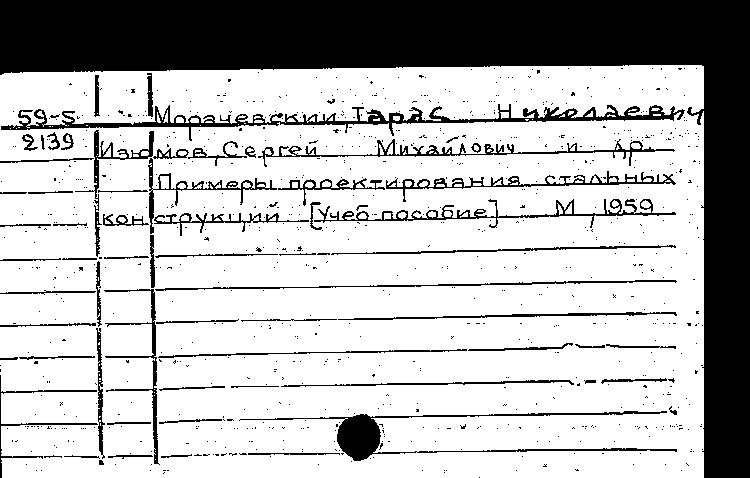 59-5 Морачевский, Тарас Николаевич
2139 Изюмов, Сергей Михайлович и др.
Примеры проектирования стальных
конструкций [Учеб. пособие] М, 1959